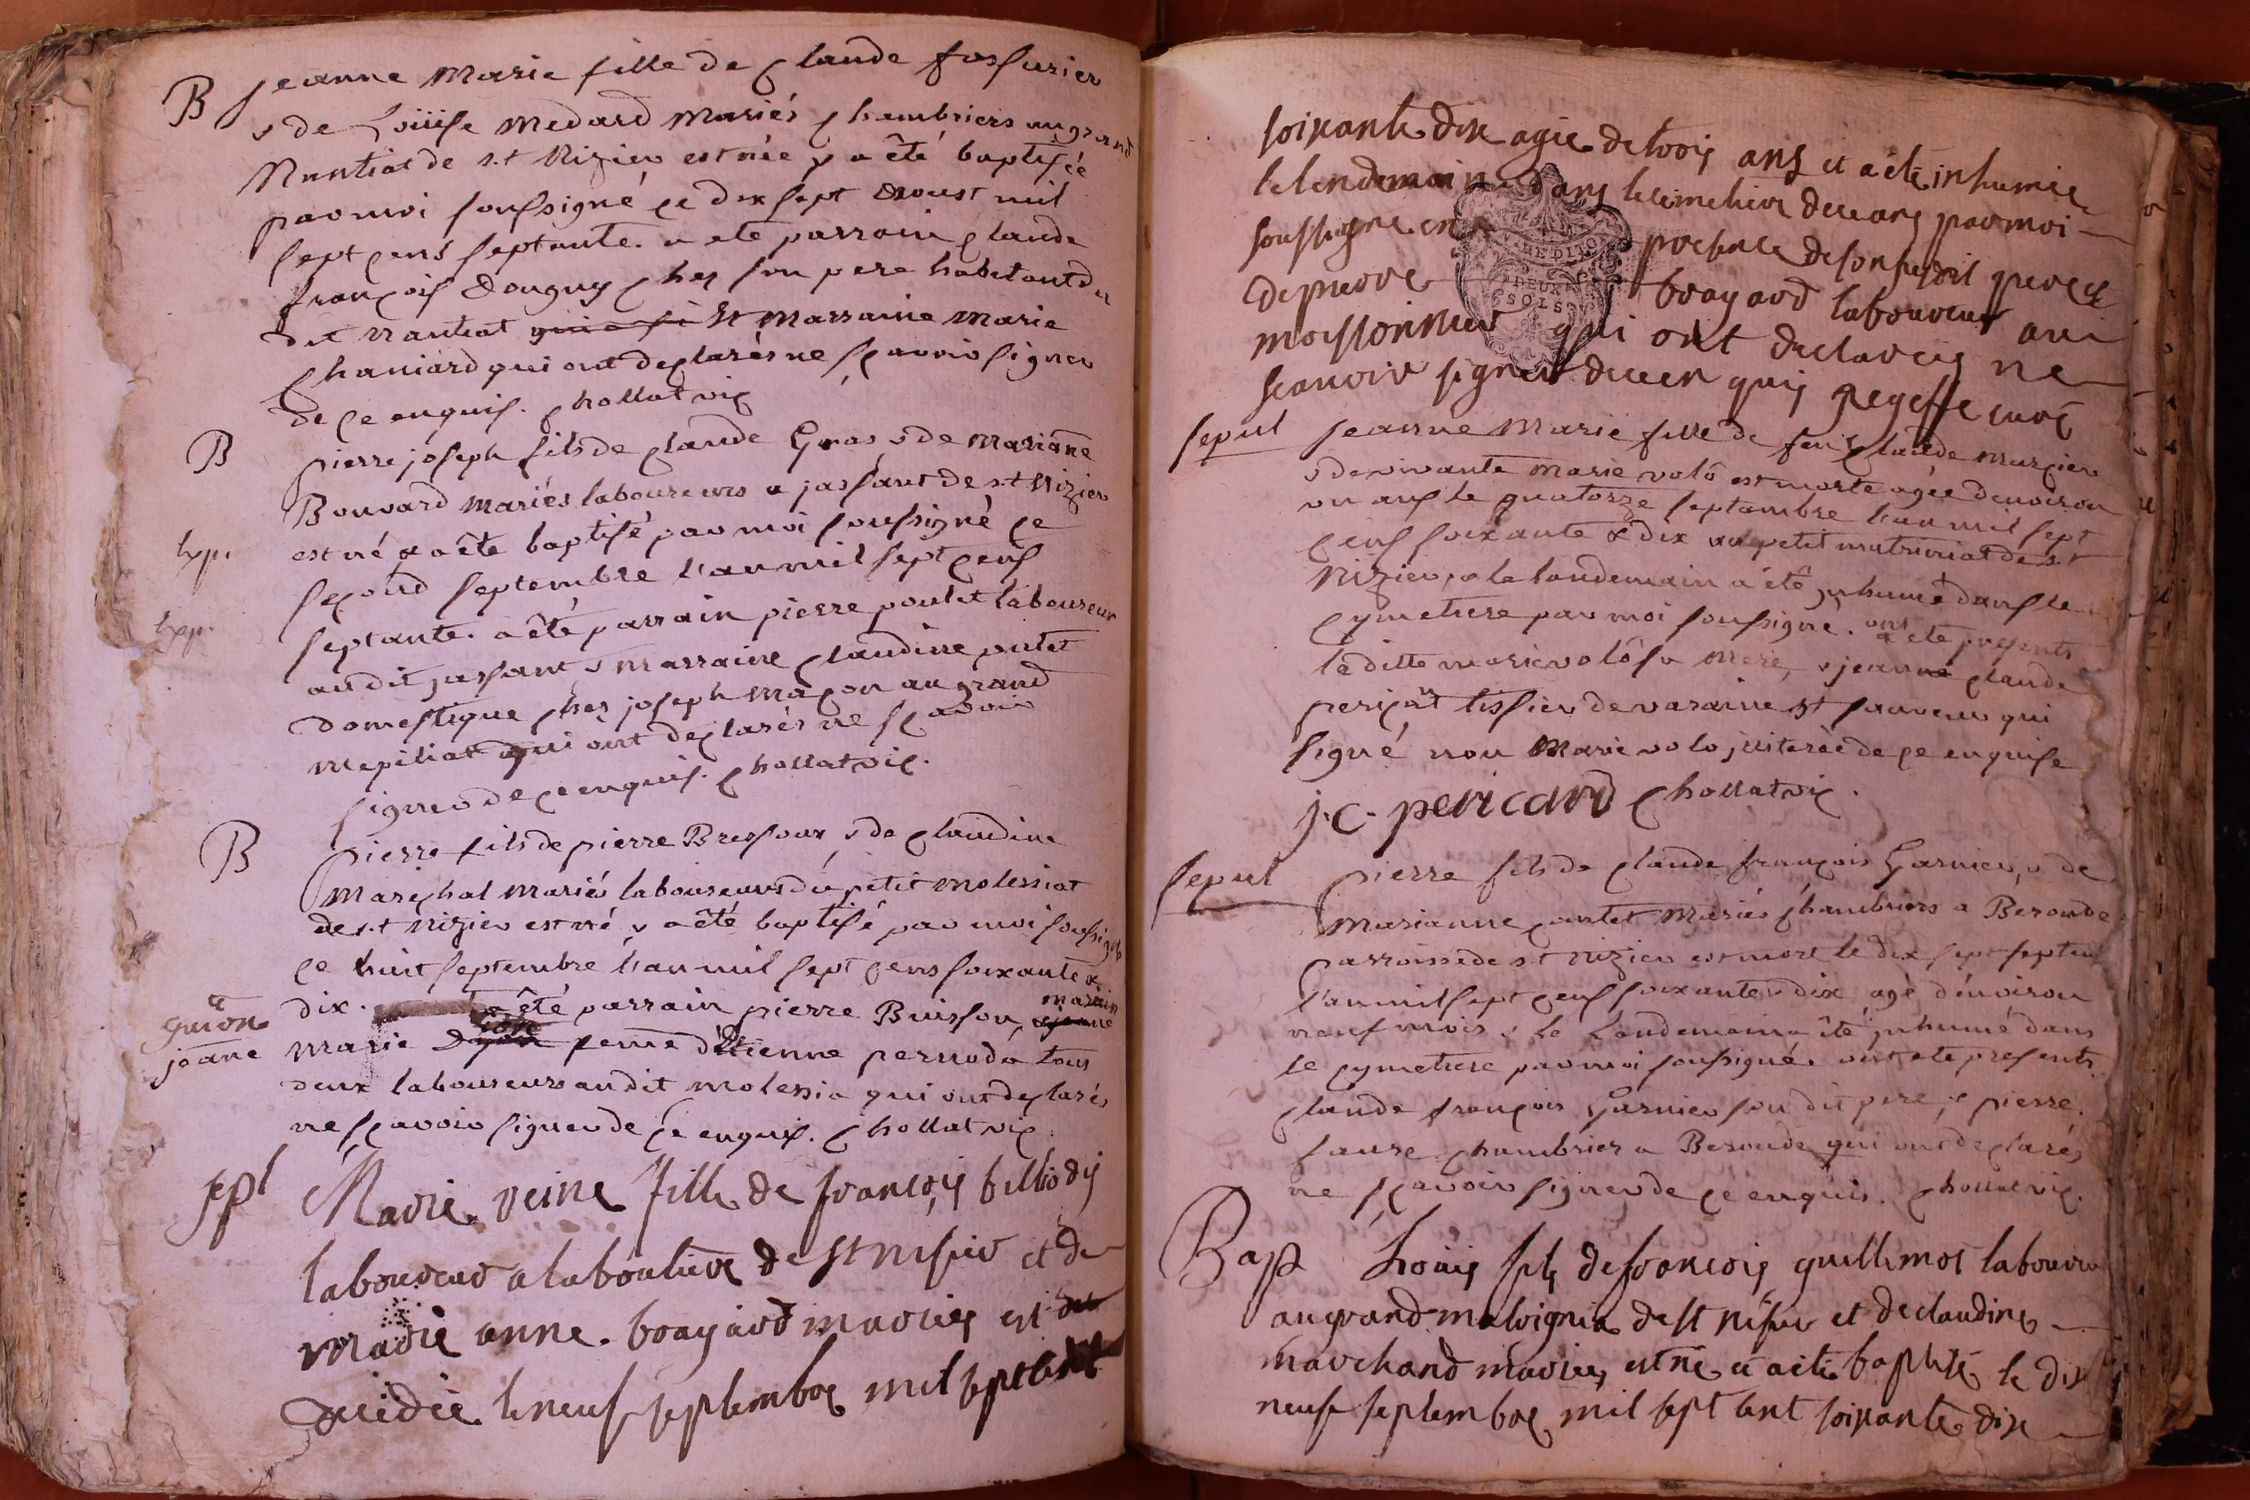 B Jeanne Marie fille de Claude fossurier
& de Loüise Medard mariés chambriers au grand
Nantiat de s.t Nizier est née & a êté baptisée
par moi soussigné ce dix sept aoust mil
sept cens septante. a ete parrain Claude
françois Dougny chez son pere habitant du
dit nantiat et marraine marie
Chaniard qui ont declarés ne sçavoir signer
de ce enquis. Chollat vic
B pierre joseph fils de Claude Gras & de marianne
Bouvard mariés laboureurs a jassant de s.t Nizier
est né & a êté baptisé par moi soussigné ce
second septembre l'an mil sept cens
septante. a êté parrain pierre poulet laboureur
audit jassant & marraine Claudine putet
domestique chez joseph maçon au grand
mepiliat qui ont declarés ne sçavoir
signer de ce enquis. Chollat vic.
B pierre fils de pierre Bressoux & de Claudine
Marechal mariés laboureurs du petit molessiat
de s.t Nizier est né & a êté baptisé par moi soussigné
ce huit septembre l'an mil sept cens soixante &
dix. a êté parrain pierre Buisson, marain
guion
jeane
marie femme d'étienne peruoda tous
deux laboureurs audit molessia qui ont declarés
ne sçavoir signer de ce enquis. Chollat vic
sepl Marie reine fille de françois billiodis
laboureur a la boulure de St nisier et de
marie anne brayard mariés est
decedée le neuf septembre mil sept cent
soixante dix agée de trois ans et a êté inhumée
le lendemain dans le cimetiere de ceans par moi
soussigné en presence de son susdit pere &
de pierre brayard laboureur au
moissonnier qui ont declarés ne
scavoir signer de ce enquis gegeffe curé
sepul jeanne Marie fille de feu Claude murcier
& de vivante marie volô est morte agée denviron
un ans le quatorze septembre l'an mil sept
cens soixante & dix au petit matriniat de s.t
Nizier, & le landemain a êté inhumé dans le
cymetiere par moi soussigné. ont êté presents
la ditte marie volô sa mere, & jeanne claude
pericat tissier de varaine st sauveur qui
signé non marie volo jlliterée de ce enquise
j. c. pericard Chollat vic.
sepul pierre fils de Claude françois Garnier, & de
marianne cautet mariés chambriers a Beroude
parroisse de s.t Nizier est mort le dix sept septem
l'an mil sept cens soixante & dix agé d'environ
neuf mois & le landemain a êté inhumé dans
le cymetiere par moi soussigné. ont ete presents
Claude françois Garnier son dit pere, & pierre
faure chambrier a Beroude qui ont declarés
ne sçavoir signer de ce enquis. Chollat vic.
Bap Loüis fils de françois guillimot laboureur
au grand malvignia de st nisier et de claudine
marchand mariés, est né et a êté baptisé le dix
neuf septembre mil sept cent soixante dix